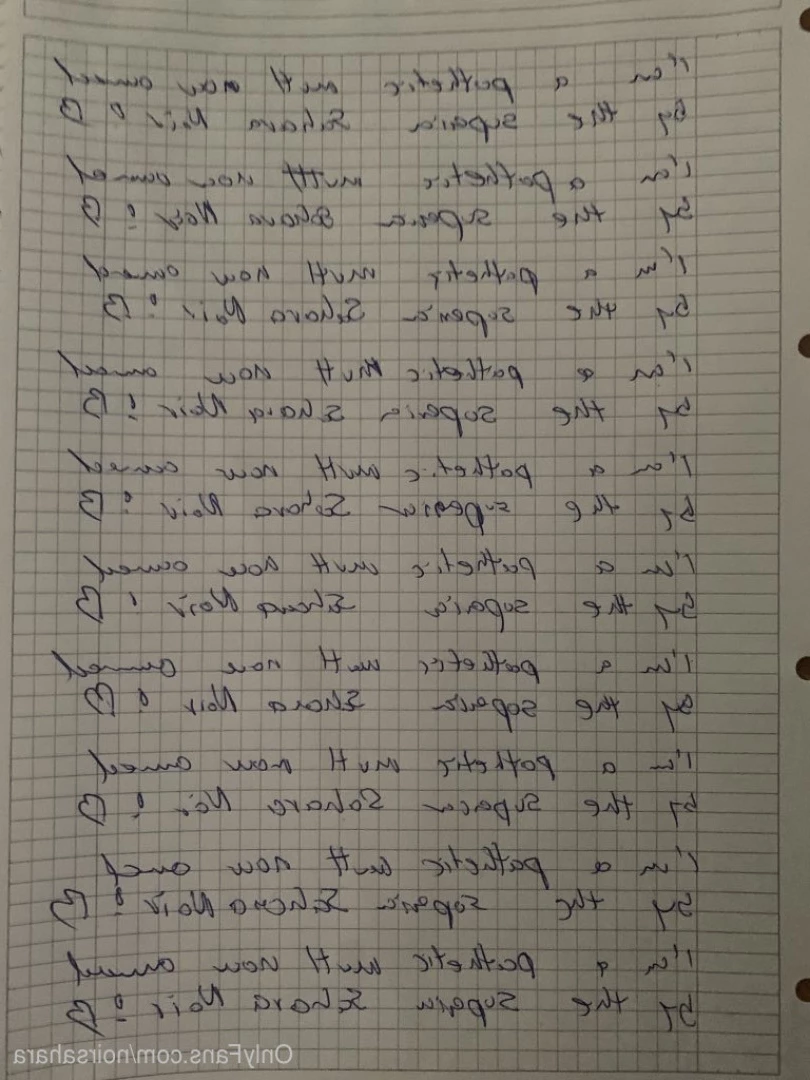 I'm a pathetic mutt now owned
By the superior Sahara Noir ! ♡
I'm a pathetic mutt now owned
By the superior Sahara Noir ! ♡
I'm a pathetic mutt now owned
By the superior Sahara Noir ! ♡
I'm a pathetic mutt now owned
By the superior Sahara Noir ! ♡
I'm a pathetic mutt now owned
By the superior Sahara Noir ! ♡
I'm a pathetic mutt now owned
By the superior Sahara Noir ! ♡
I'm a pathetic mutt now owned
By the superior Sahara Noir ! ♡
I'm a pathetic mutt now owned
By the superior Sahara Noir ! ♡
I'm a pathetic mutt now owned
By the superior Sahara Noir ! ♡
I'm a pathetic mutt now owned
By the superior Sahara Noir ! ♡
OnlyFans.com/noirsahara